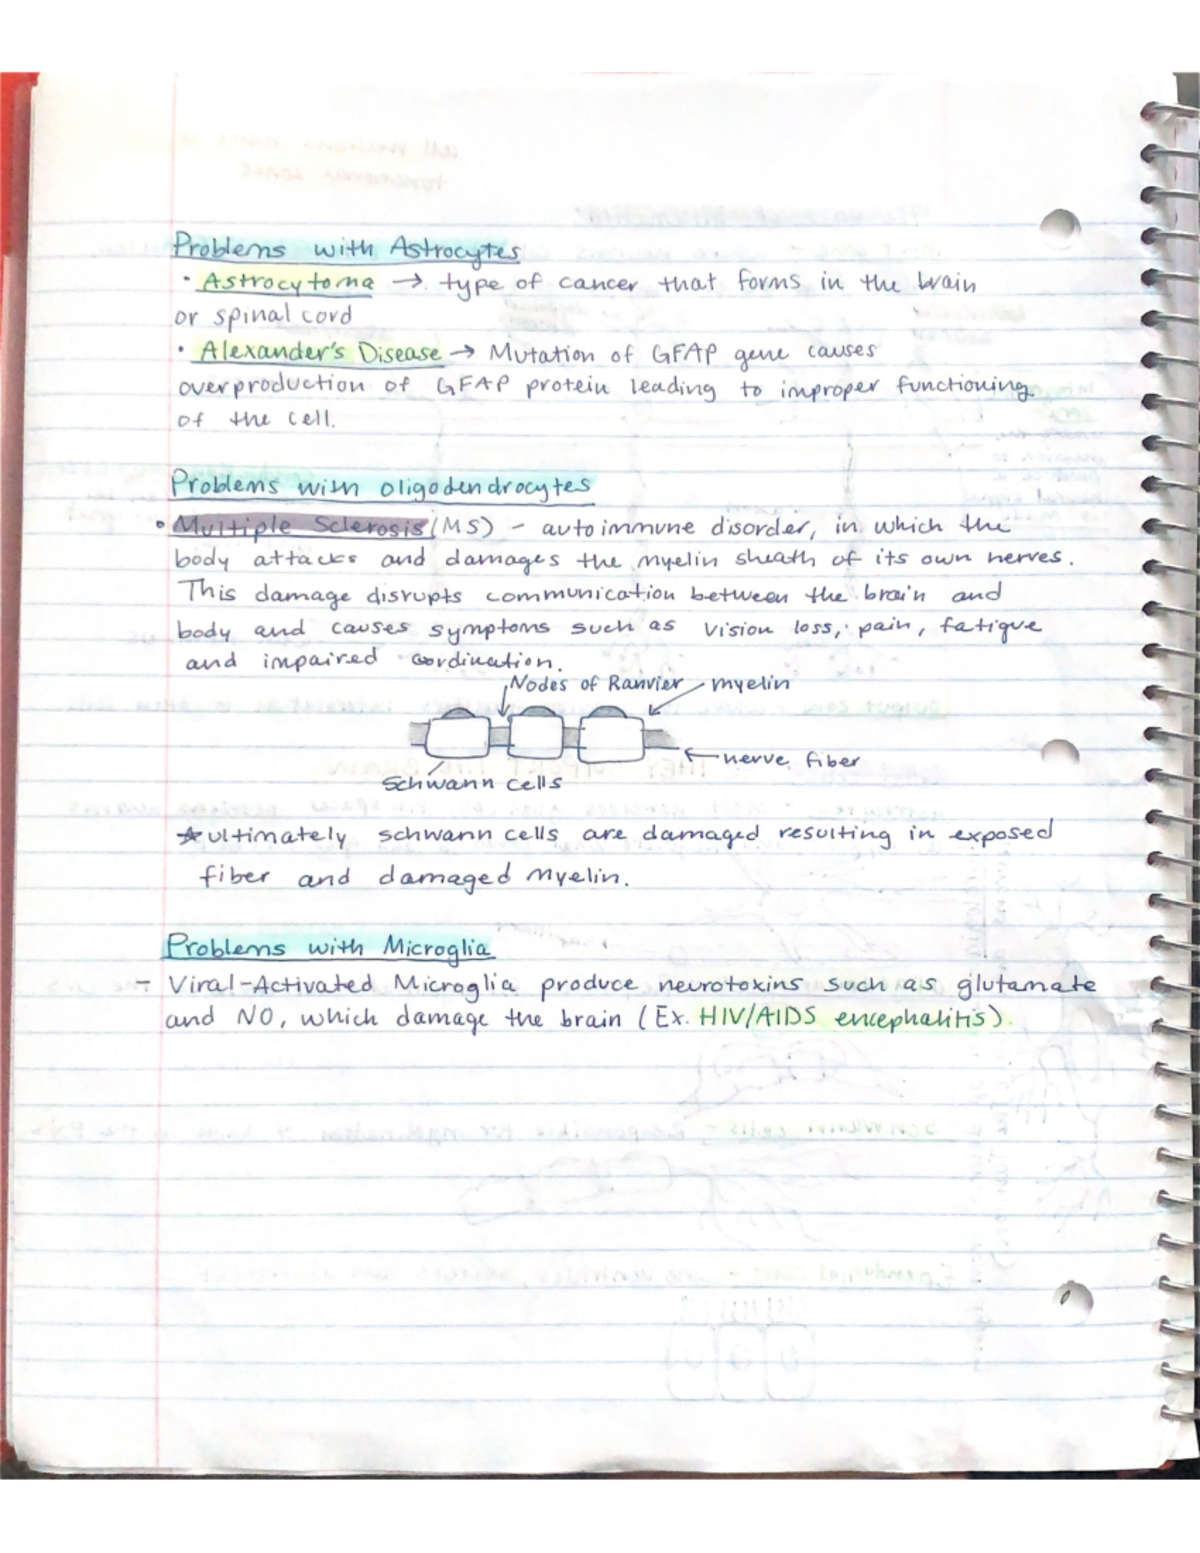 Problems with Astrocytes
• Astrocytoma → type of cancer that forms in the brain
or spinal cord
• Alexander's Disease → Mutation of GFAP gene causes
overproduction of GFAP protein leading to improper functioning
of the cell.
Problems with oligodendrocytes
• Multiple Sclerosis (MS) - autoimmune disorder, in which the
body attacks and damages the myelin sheath of its own nerves.
This damage disrupts communication between the brain and
body and causes symptoms such as vision loss, pain, fatigue
and impaired cordination.
Nodes of Ranvier myelin
nerve fiber
Schwann cells
☆ ultimately schwann cells are damaged resulting in exposed
fiber and damaged myelin.
Problems with Microglia
- Viral-Activated Microglia produce neurotoxins such as glutamate
and NO, which damage the brain (Ex. HIV/AIDS encephalitis).